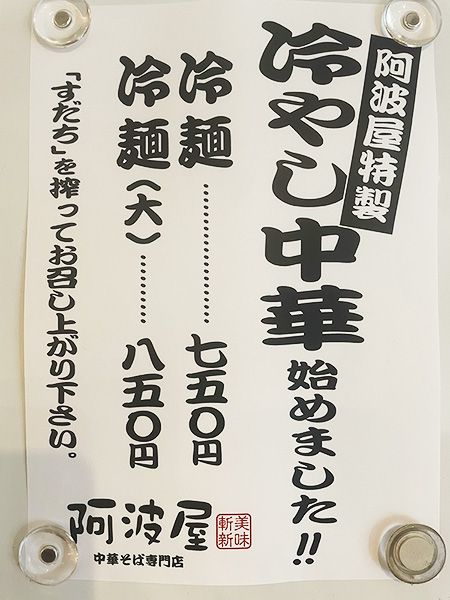 阿波屋特製
冷やし中華始めました!!
冷麺…………七五〇円
冷麺(大)……八五〇円
「すだち」を搾ってお召し上がり下さい。
阿波屋
美味
斬新
中華そば専門店